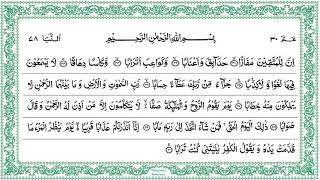 عـم ٣٠ بِسْمِ اللّٰهِ الرَّحْمٰنِ الرَّحِيْمِ النَّبَا ٧٨
اِنَّ لِلْمُتَّقِيْنَ مَفَازًا حَدَآئِقَ وَاَعْنَابًا وَّكَوَاعِبَ اَتْرَابًا وَّكَاْسًا دِهَاقًا لَا يَسْمَعُوْنَ
فِيْهَا لَغْوًا وَّلَا كِذّٰبًا جَزَآءً مِّنْ رَّبِّكَ عَطَآءً حِسَابًا رَّبِّ السَّمٰوٰتِ وَالْاَرْضِ وَمَا بَيْنَهُمَا الرَّحْمٰنِ لَا
يَمْلِكُوْنَ مِنْهُ خِطَابًا يَوْمَ يَقُوْمُ الرُّوْحُ وَالْمَلٰٓئِكَةُ صَفًّا لَّا يَتَكَلَّمُوْنَ اِلَّا مَنْ اَذِنَ لَهُ الرَّحْمٰنُ وَقَالَ
صَوَابًا ذٰلِكَ الْيَوْمُ الْحَقُّ فَمَنْ شَآءَ اتَّخَذَ اِلٰى رَبِّهٖ مَاٰبًا اِنَّآ اَنْذَرْنٰكُمْ عَذَابًا قَرِيْبًا يَّوْمَ يَنْظُرُ الْمَرْءُ مَا
قَدَّمَتْ يَدٰهُ وَيَقُوْلُ الْكٰفِرُ يٰلَيْتَنِيْ كُنْتُ تُرٰبًا